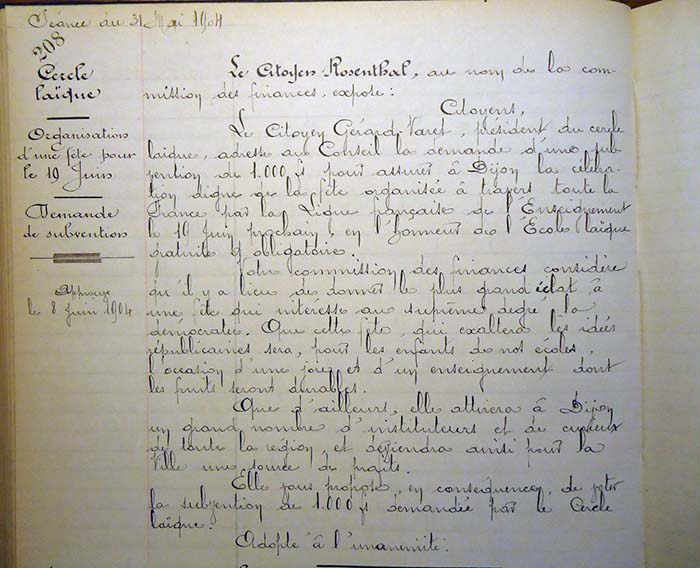 Séance du 31 Mai 1904
208
Cercle
laïque
Organisation
d'une fête pour
le 19 Juin
Demande
de subvention
Approuvé
le 8 Juin 1904
Le Citoyen Rosenthal, au nom de la com-
mission des finances, expose :
Citoyens,
Le Citoyen Gérard-Varet, président du cercle
laïque, adresse au Conseil la demande d'une sub-
vention de 1.000 fs pour assurer à Dijon la célébra-
tion digne de la fête organisée à travers toute la
France par la Ligue française de l'Enseignement
le 19 Juin prochain, en l'honneur de l'École laïque
gratuite & obligatoire.
Votre commission des finances considère
qu'il y a lieu de donner le plus grand éclat à
une fête qui intéresse au suprême degré la
démocratie. Que cette fête, qui exaltera les idées
républicaines sera, pour les enfants de nos écoles,
l'occasion d'une joie et d'un enseignement dont
les fruits seront durables.
Que d'ailleurs, elle attirera à Dijon
un grand nombre d'instituteurs et de curieux
de toute la région, et deviendra ainsi pour la
Ville une source de profits.
Elle vous propose, en conséquence, de voter
la subvention de 1.000 fs demandée par le Cercle
laïque.
Adopté à l'unanimité.